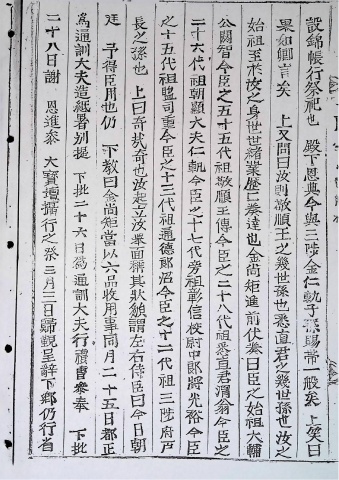 設錦帳行祭祀也　殿下恩典今與三陟金仁軌子孫賜帝一般矣　上笑曰
果如卿言矣　上又問曰汝則敬順王之幾世孫也悉直君之幾世孫也汝之
始祖至於汝之身世世緒業歷歷奏達也金尚矩進前伏奏曰臣之始祖大輔
公閼智今臣之五十五代祖敬順王傅今臣之二十八代祖悉直君渭翁今臣之
二十六代祖朝顯大夫仁軌今臣之十七代旁祖彰信校尉中郎將光裕今臣
之十五代祖監司重今臣之十三代祖通德郎沼今臣之十二代祖三陟府戶
長之孫也　上曰奇哉奇也汝起立汝業面稱其狀顧謂左右侍臣曰今日朝
廷　予得臣用也仍　下教曰金尚矩當以六品收用事同月二十五日都正
爲通訓大夫造紙署別提　下批二十六日爲通訓大夫行禮曹參奉　下批
二十八日謝　恩進參　大寶壇攝行之祭三月三日歸覲呈辭下鄉仍行省